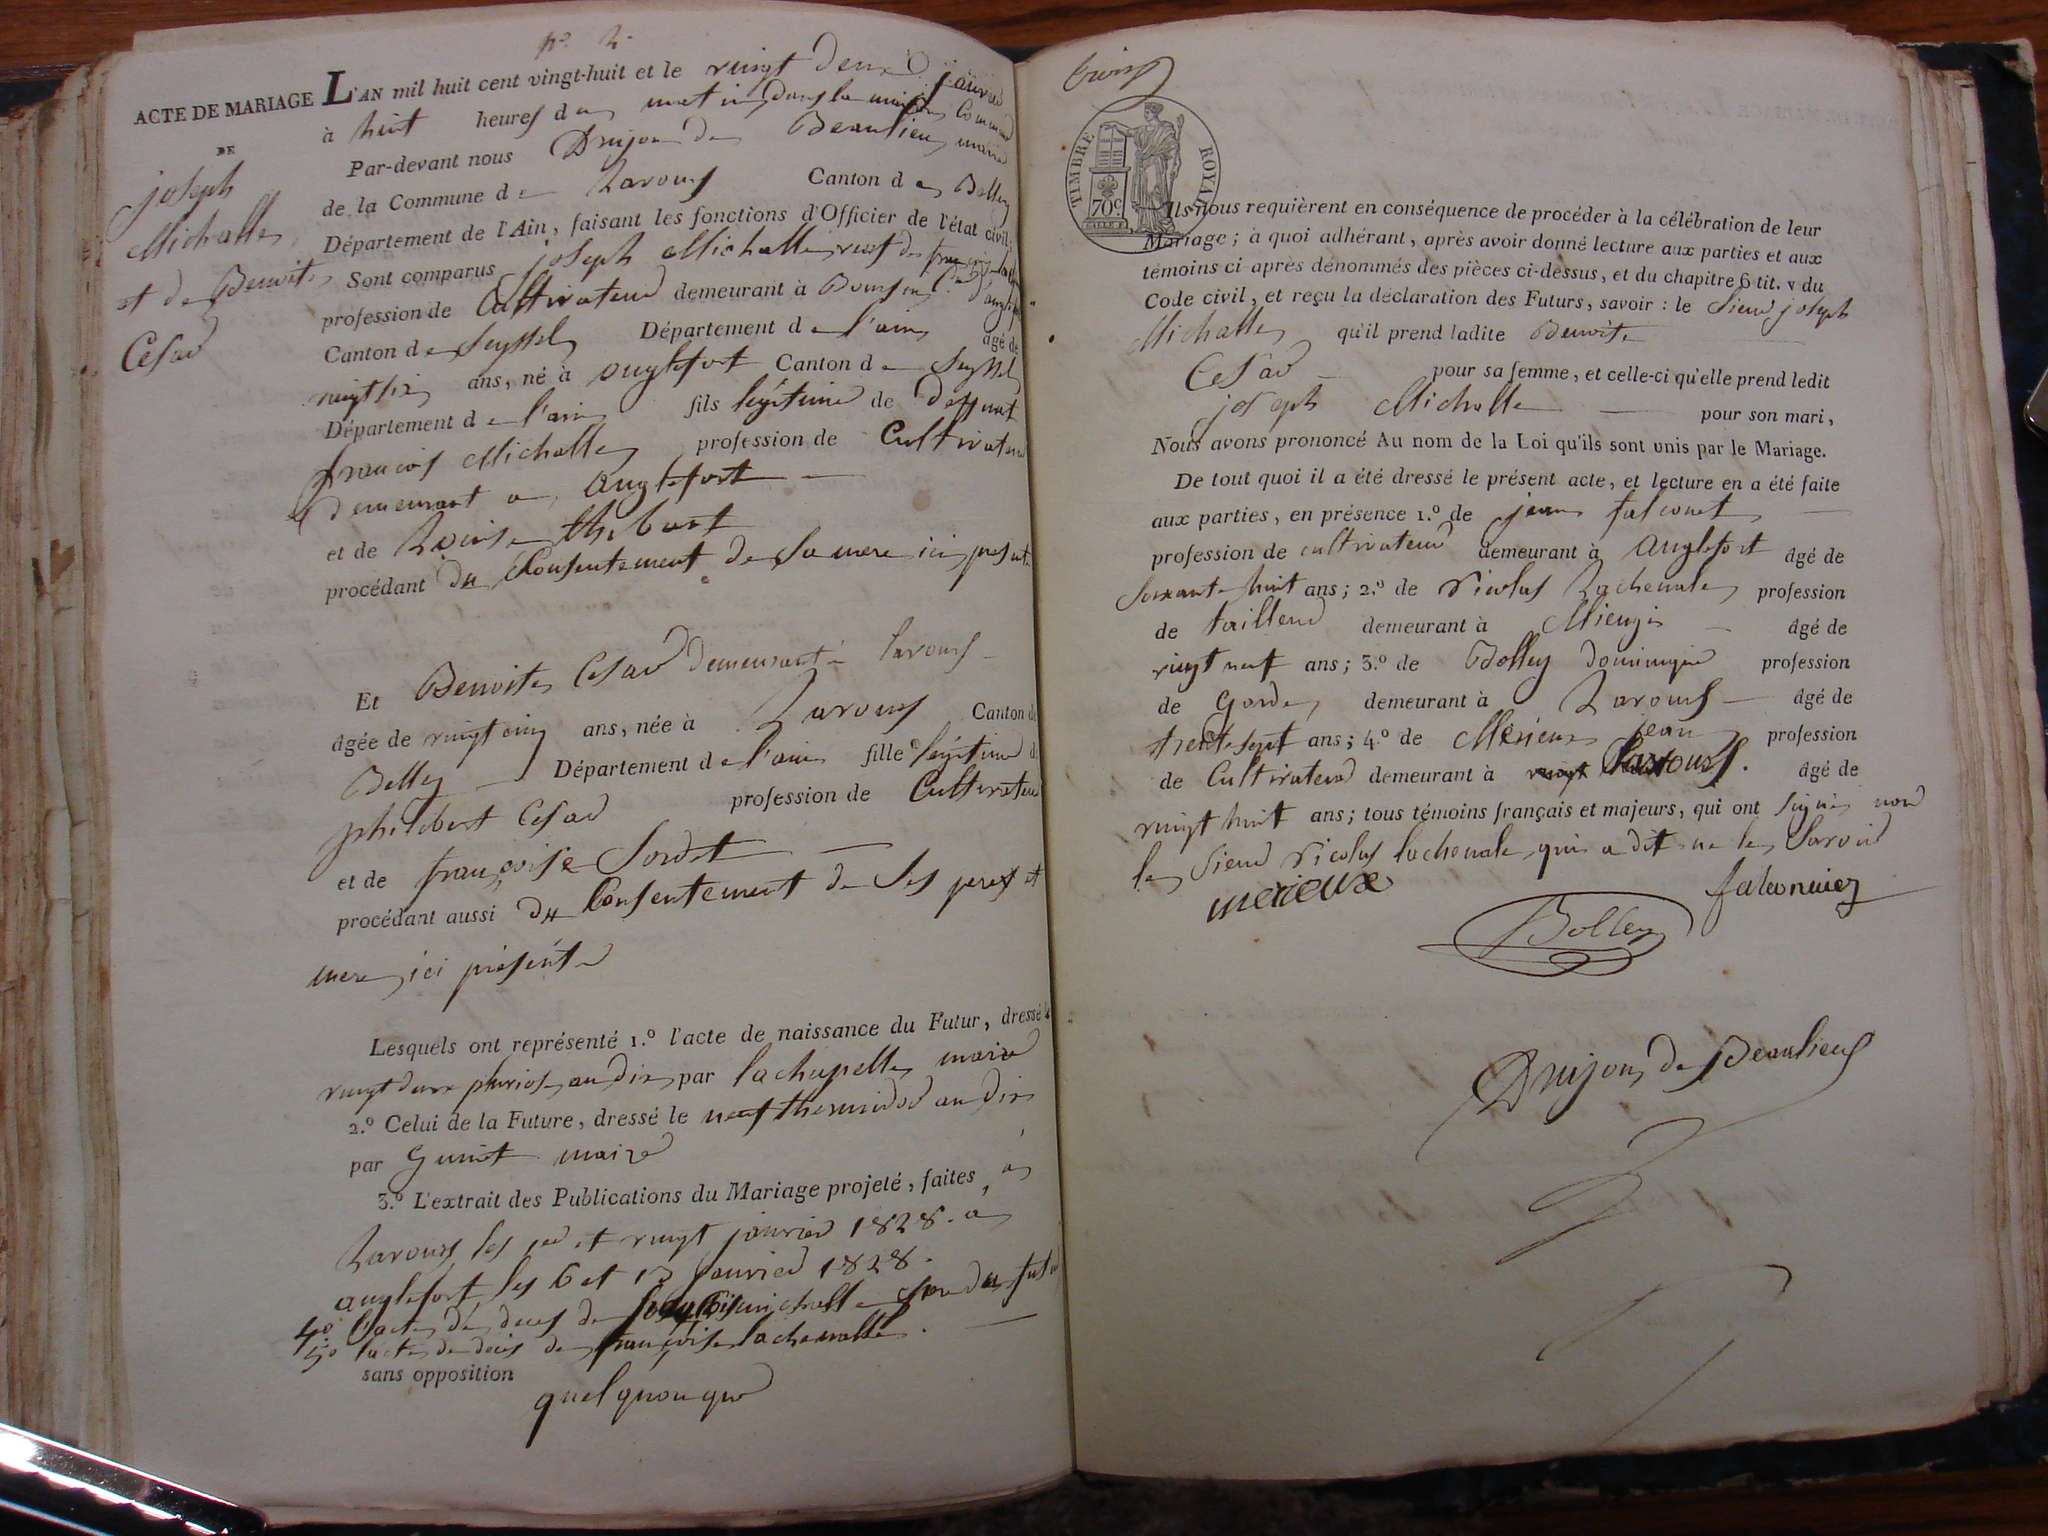 n.o 2.
ACTE DE MARIAGE
DE
joseph
Michalle
et de Benoite
Cesar
L'AN mil huit cent vingt-huit et le vingt deux janvier
à huit heures du matin, dans la maison Commune
Par-devant nous Drujon de Beaulieu maire
de la Commune de Lavours Canton de Belley
Département de l'Ain, faisant les fonctions d'Officier de l'état civil;
Sont comparus joseph Michalle veuf de françoise
profession de Cultivateur demeurant à
Canton de Seyssel Département de l'ain âgé de
vingt six ans, né à anglefort Canton de Seyssel
Département de l'ain fils légitime de deffunt
françois Michalle profession de Cultivateur
demeurant a Anglefort
et de Louise thibaut
procédant du Consentement de Sa mere ici présente
Et Benoite Cesar demeurant à lavours
âgée de vingt cinq ans, née à Lavours Canton de
Belley Département de l'ain fille légitime de
philibert Cesar profession de Cultivateur
et de françoise Sordet
procédant aussi du Consentement de Ses pere et
mere ici présents
Lesquels ont représenté 1.o l'acte de naissance du Futur, dressé le
vingt deux pluviose an dix par lachapelle maire
2.o Celui de la Future, dressé le neuf thermidor an dix
par Guinet maire
3.o L'extrait des Publications du Mariage projeté, faites, à
Lavours les et vingt janvier 1828. a
anglefort les 6 et 13 janvier 1828.
4o l'acte de deces de michalle pere du futur
5o l'acte de deces de françoise lachenalle.
sans opposition
quelquonque
TIMBRE ROYAL
70c.
Ils nous requièrent en conséquence de procéder à la célébration de leur
Mariage; à quoi adhérant, après avoir donné lecture aux parties et aux
témoins ci-après dénommés des pièces ci-dessus, et du chapitre 6 tit. v du
Code civil, et reçu la déclaration des Futurs, savoir: le Sieur joseph
Michalle qu'il prend ladite Benoite
Cesar pour sa femme, et celle-ci qu'elle prend ledit
joseph Michalle pour son mari,
Nous avons prononcé Au nom de la Loi qu'ils sont unis par le Mariage.
De tout quoi il a été dressé le présent acte, et lecture en a été faite
aux parties, en présence 1.o de jean falconet
profession de cultivateur demeurant à Anglefort âgé de
soixante huit ans; 2.o de Nicolas Lachenale profession
de tailleur demeurant à âgé de
vingt neuf ans; 3.o de Bolley dominique profession
de Garde demeurant à Lavours âgé de
trente sept ans; 4.o de Merieux jean profession
de Cultivateur demeurant à Lavours. âgé de
vingt huit ans; tous témoins français et majeurs, qui ont signé non
le Sieur Nicolas lachenale qui a dit ne le Savoir
merieux
Bolley
Drujon de Beaulieu